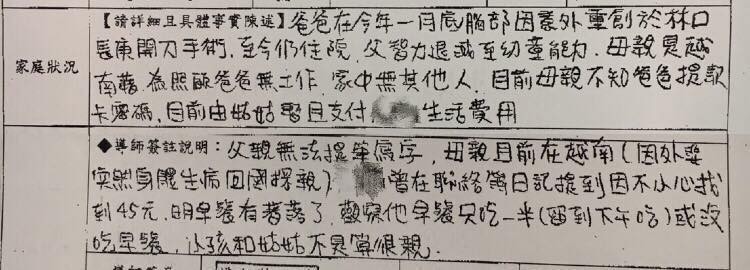 【請詳細且具體事實陳述】爸爸在今年一月底腦部因意外重創於林口
長庚開刀手術,至今仍住院,父智力退減至幼童能力.母親是越
家庭狀況
南籍,為照顧爸爸無工作,家中無其他人,目前母親不知爸爸提款
卡密碼,目前由姑姑暫且支付 生活費用
◆導師簽註說明:父親無法提筆寫字,母親目前在越南(因外婆
突然身體生病回國探親) 曾在聯絡簿日記提到因不小心找
到45元,明早餐有著落了,觀察他早餐只吃一半(留到下午吃)或沒
吃早餐,小孩和姑姑不是算很親.